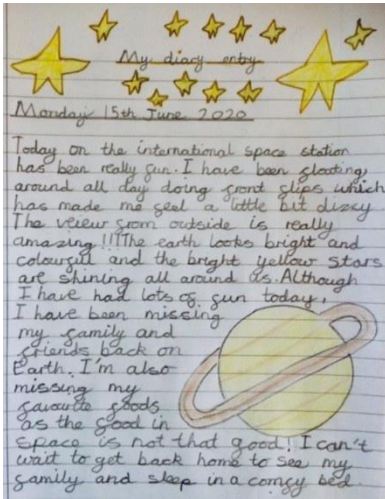 My diary entry
Monday 15th June 2020
Today on the international space station
has been really fun. I have been floating,
around all day doing front flips which
has made me feel a little bit dizzy
The veiew from outside is really
amazing!!!The earth looks bright and
colourful and the bright yellow stars
are shining all around us. Although
I have had lots of fun today,
I have been missing
my family and
friends back on
Earth. I'm also
missing my
favourite foods
as the food in
space is not that good! I can't
wait to get back home to see my
family and sleep in a comfy bed.